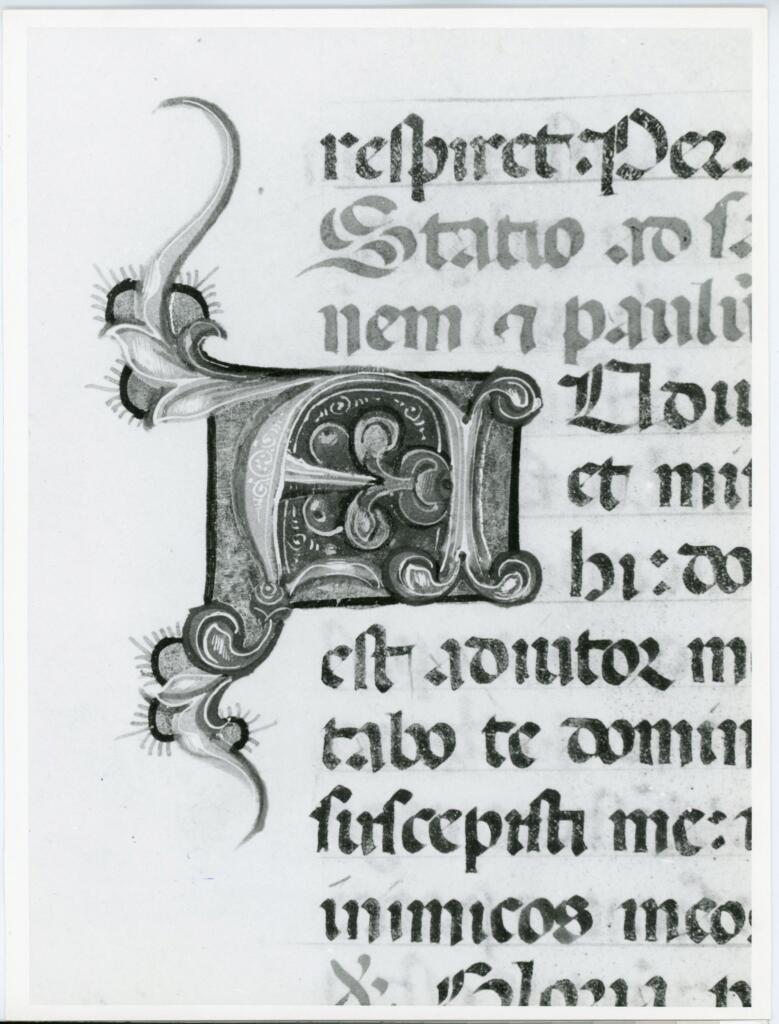 respiret. Per.
Statio ad sa
nem ⁊ paulū
AUdiu
et mi
hi: do
est adiutor m
tabo te domin
suscepisti me:
inimicos meos
℣. Gloria p